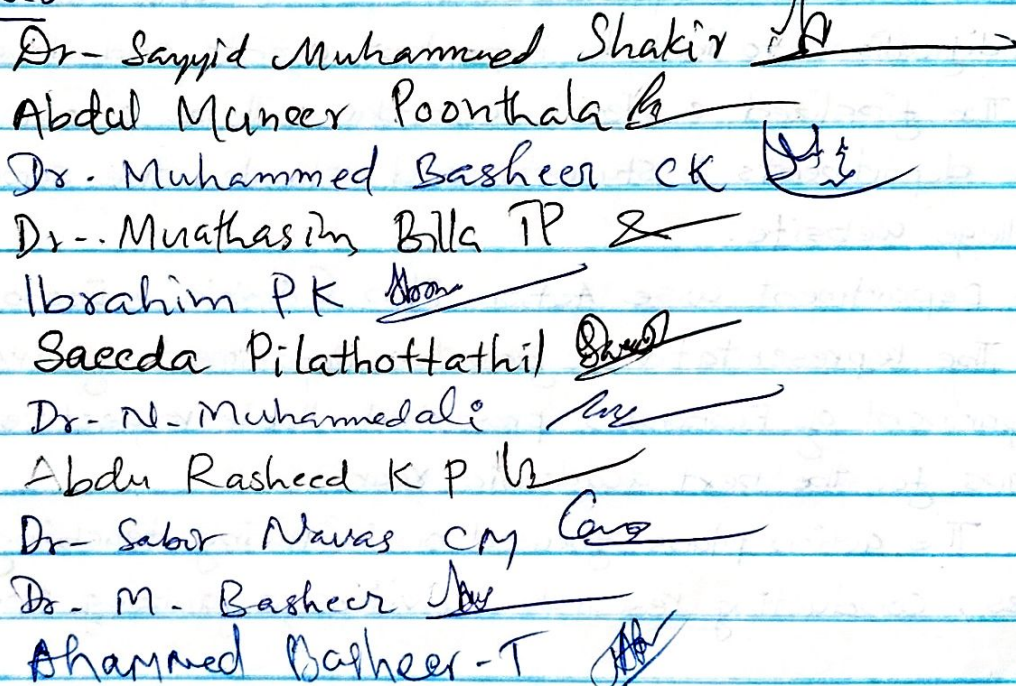 Dr- Sayyid Muhammed Shakir
Abdul Muneer Poonthala
Dr. Muhammed Basheer CK
Dr-. Muathasim Billa TP
Ibrahim PK
Saeeda Pilathottathil
Dr- N- Muhammedali
Abdu Rasheed K P
Dr- Sabir Navas CM
Dr- M- Basheer
Ahammed Basheer-T